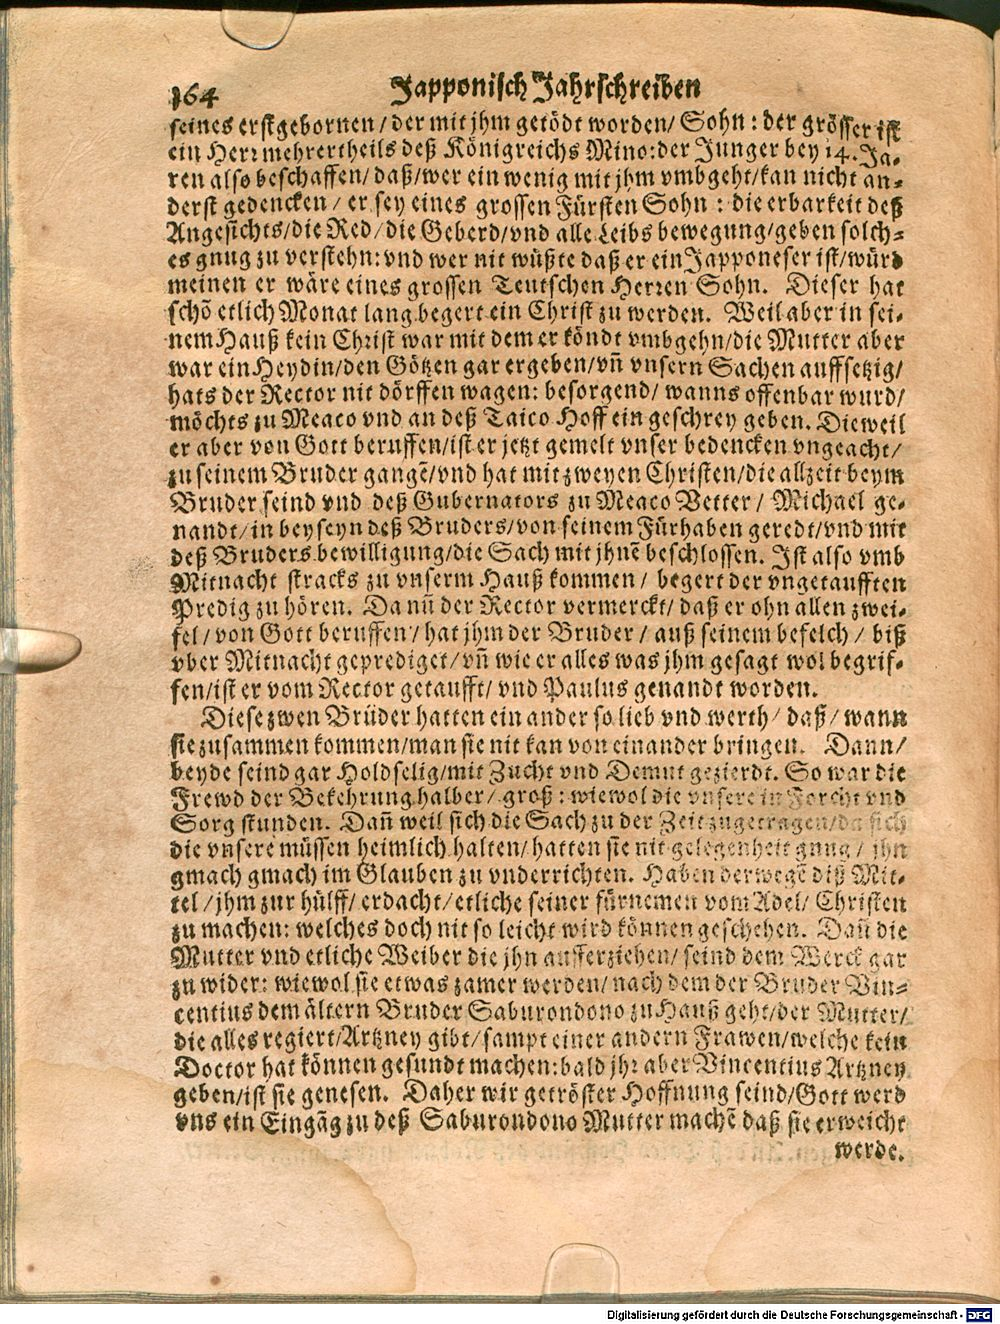 164 Japponisch Jahrschreiben
seines erstgebornen / der mit jhm getödt worden / Sohn : der grösser ist
ein Herr mehrertheils deß Königreichs Mino: der Junger bey 14. Ja-
ren also beschaffen / daß / wer ein wenig mit jhm vmbgeht / kan nicht an-
derst gedencken / er sey eines grossen Fürsten Sohn : die erbarkeit deß
Angesichts / die Red / die Geberd / vnd alle Leibs bewegung / geben solch-
es gnug zu verstehn: vnd wer nit wüßte daß er ein Japponeser ist / würd
meinen er wäre eines grossen Teutschen Herren Sohn. Dieser hat
schõ etlich Monat lang begert ein Christ zu werden. Weil aber in sei-
nem Hauß kein Christ war mit dem er köndt vmbgehn / die Mutter aber
war ein Heydin / den Götzen gar ergeben / vñ vnsern Sachen auffsetzig /
hats der Rector nit dörffen wagen: besorgend / wanns offenbar wurd /
möchts zu Meaco vnd an deß Taico Hoff ein geschrey geben. Dieweil
er aber von Gott beruffen / ist er jetzt gemelt vnser bedencken vngeacht /
zu seinem Bruder gangẽ / vnd hat mit zweyen Christen / die allzeit beym
Bruder seind vnd deß Gubernators zu Meaco Vetter / Michael ge-
nandt / in beyseyn deß Bruders / von seinem Fürhaben geredt / vnd mit
deß Bruders bewilligung / die Sach mit jhnẽ beschlossen. Ist also vmb
Mitnacht stracks zu vnserm Hauß kommen / begert der vngetaufften
Predig zu hören. Da nũ der Rector vermerckt / daß er ohn allen zwei-
fel / von Gott beruffen / hat jhm der Bruder / auß seinem befelch / biß
vber Mitnacht geprediget / vñ wie er alles was jhm gesagt wol begrif-
fen / ist er vom Rector getaufft / vnd Paulus genandt worden.
Diese zwen Brüder hatten ein ander so lieb vnd werth / daß / wann
sie zusammen kommen / man sie nit kan von einander bringen. Dann /
beyde seind gar Holdselig / mit Zucht vnd Demut gezierdt. So war die
Frewd der Bekehrung halber / groß : wiewol die vnsere in Forcht vnd
Sorg stunden. Dañ weil sich die Sach zu der Zeit zugetragen / da sich
die vnsere müssen heimlich halten / hatten sie nit gelegenheit gnug / jhn
gmach gmach im Glauben zu vnderrichten. Haben derwegẽ diß Mit-
tel / jhm zur hülff / erdacht / etliche seiner fürnemen vom Adel / Christen
zu machen: welches doch nit so leicht wird können geschehen. Dañ die
Mutter vnd etliche Weiber die jhn aufferziehen / seind dem Werck gar
zu wider: wiewol sie etwas zamer werden / nach dem der Bruder Vin-
centius dem ältern Bruder Saburondono zu Hauß geht / der Mutter /
die alles regiert / Artzney gibt / sampt einer andern Frawen / welche kein
Doctor hat können gesundt machen: bald jhr aber Vincentius Artzney
geben / ist sie genesen. Daher wir getröster Hoffnung seind / Gott werd
vns ein Eingãg zu deß Saburondono Mutter machẽ daß sie erweicht
werde.
Digitalisierung gefördert durch die Deutsche Forschungsgemeinschaft - DFG